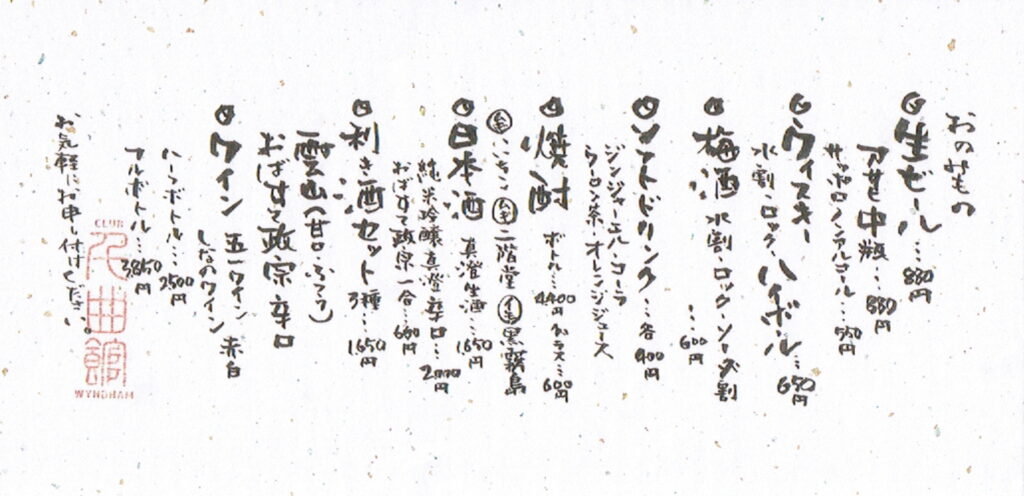 おのみもの
◎生ビール…880円
アサヒ中瓶…880円
サッポロノンアルコール…550円
◎ウィスキー ハイボール…650円
水割・ロック・
◎梅酒 水割・ロック・ソーダ割
…600円
◎ソフトドリンク…各400円
ジンジャーエール・コーラ
ウーロン茶・オレンジジュース
◎焼酎 ボトル…4,400円 グラス…600円
麦いいちこ 麦二階堂 芋黒霧島
◎日本酒 真澄生酒…1,650円
純米吟醸真澄辛口…2000円
おばすて政宗一合…660円
◎利き酒セット3種…1,650円
雲山(甘口・ふつう)
おばすて政宗辛口
◎ワイン 五一ワイン 赤白
しなのワイン
ハーフボトル…2500円
フルボトル…3,850円
お気軽にお申し付けください。
CLUB
館
WYNDHAM